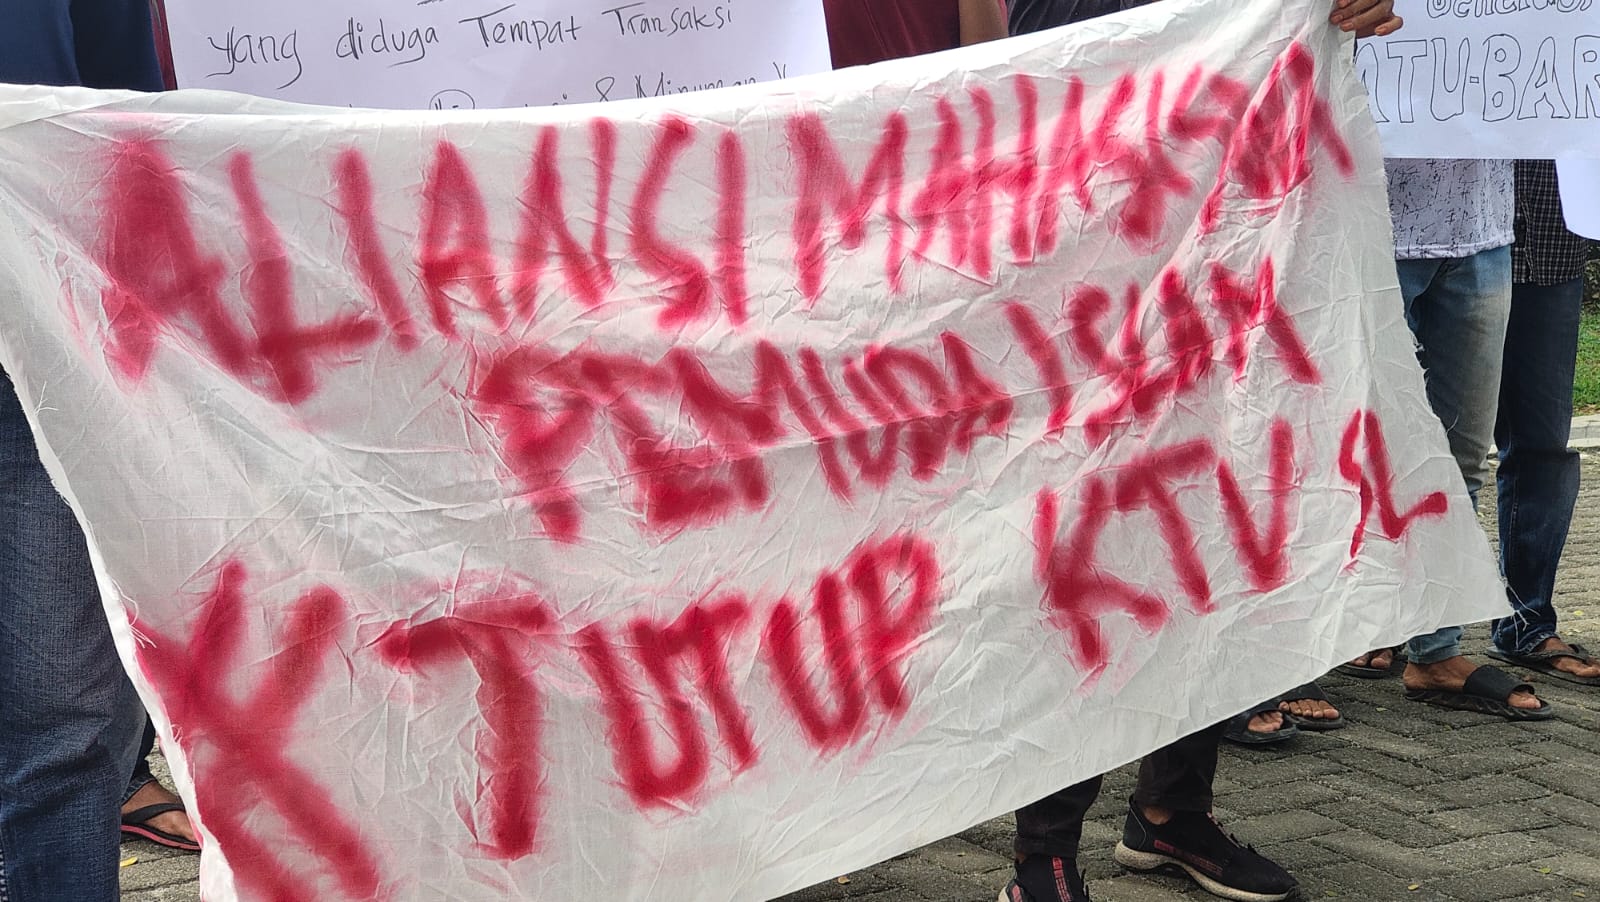 yang diduga Tempat Transaksi
& Minuman
ATU-BAR
ALIANSI MAHASISWA
PEMUDA ISLAM
X TUTUP KTV 2